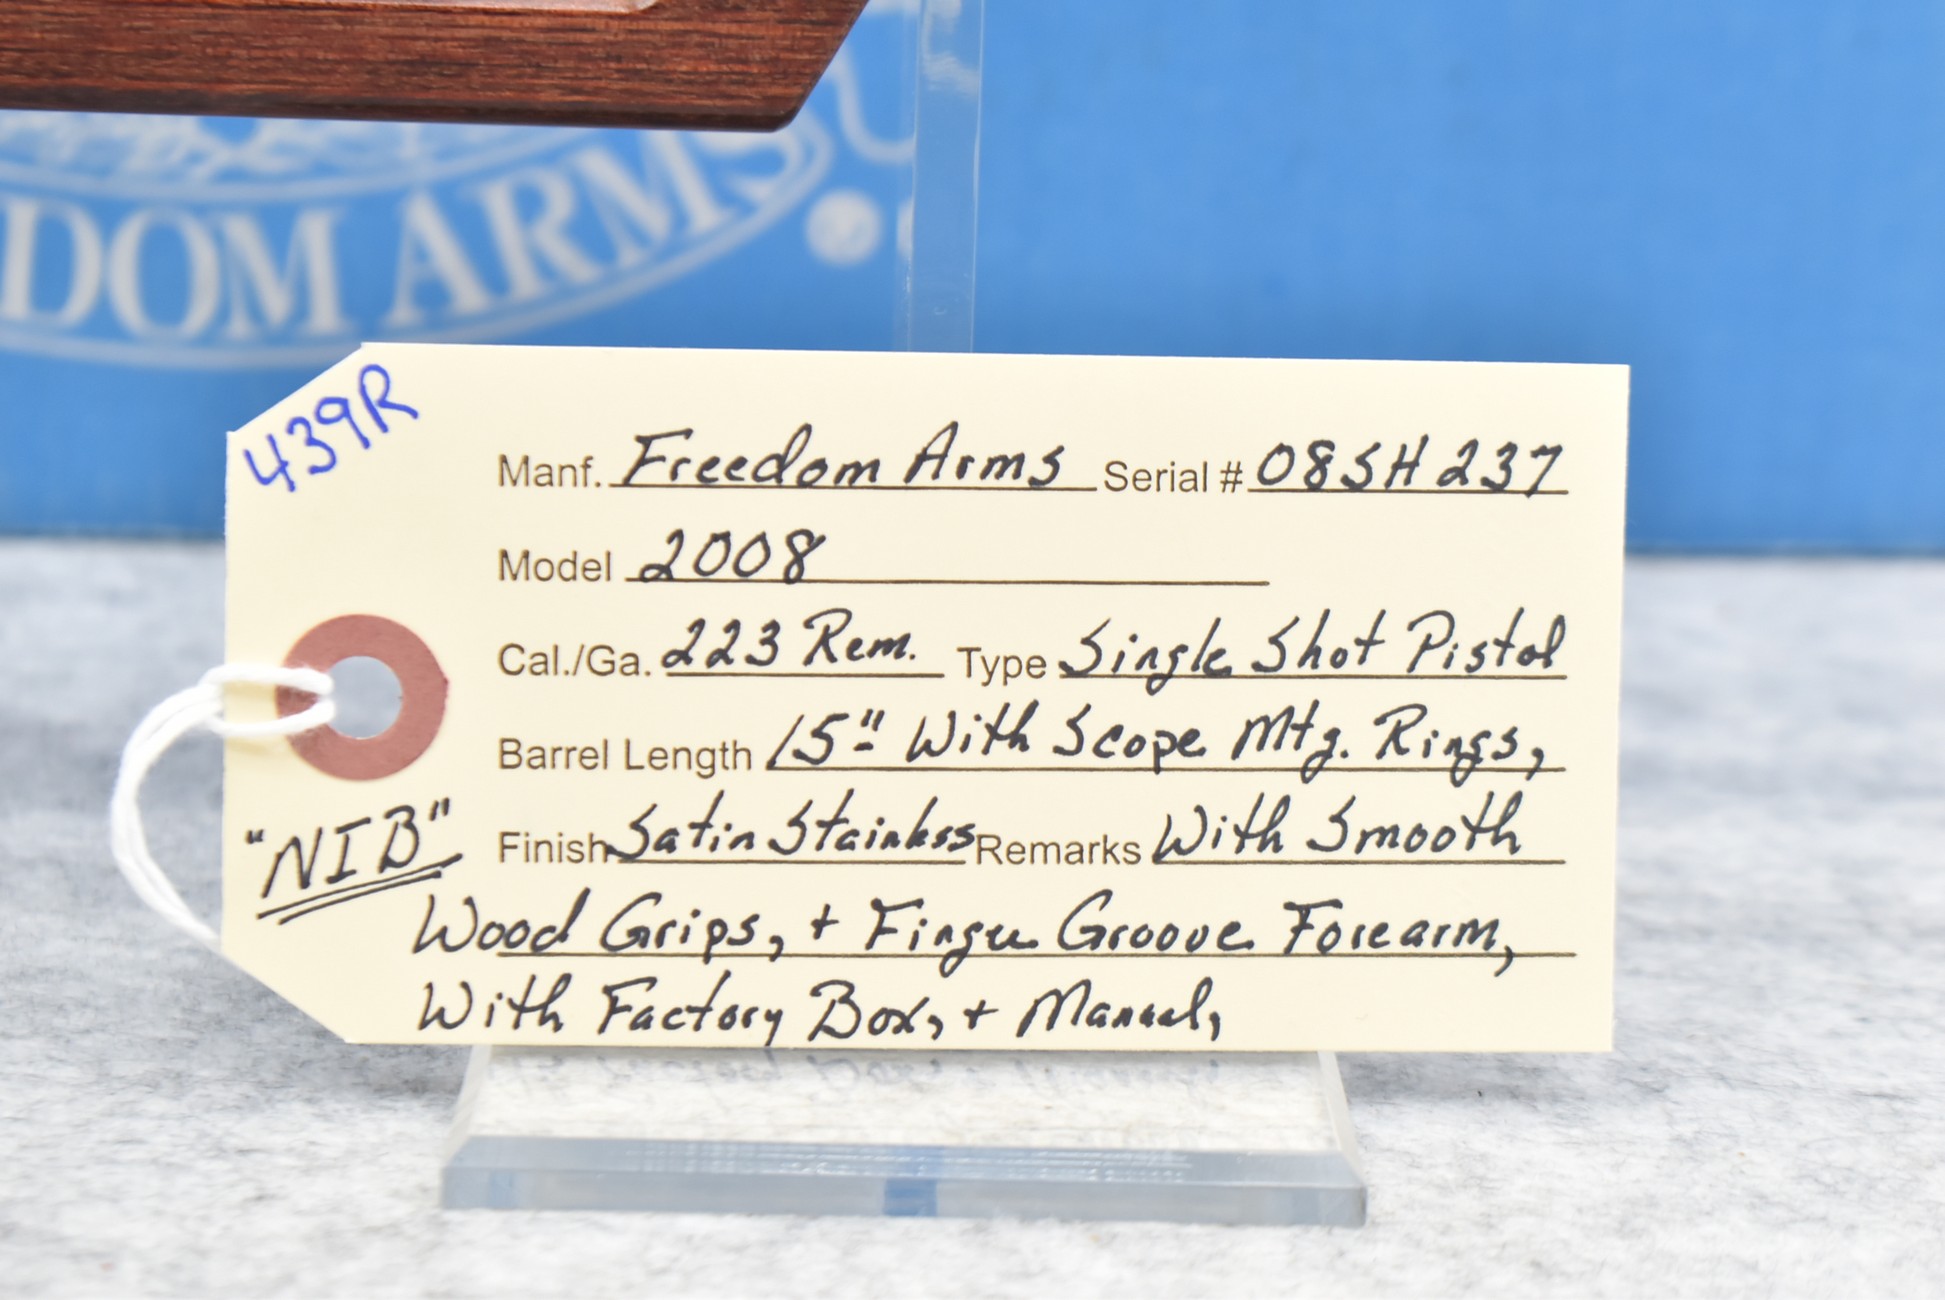 DOM ARMS
439R
Manf. Freedom Arms Serial # 08SH237
Model 2008
Cal./Ga. 223 Rem. Type Single Shot Pistol
Barrel Length 15" With Scope Mtg. Rings,
Finish Satin Stainless Remarks With Smooth
"NIB"
Wood Grips, + Finger Groove Forearm,
With Factory Box, + Manual,